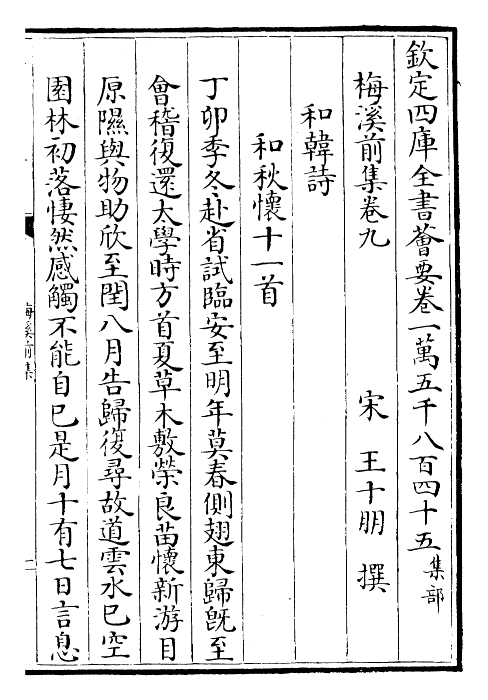 欽定四庫全書薈要卷一萬五千八百四十五集部
梅溪前集卷九　宋　王十朋　撰
和韓詩
和秋懷十一首
丁卯季冬赴省試臨安至明年莫春側翅東歸既至
會稽復還太學時方首夏草木敷榮良苗懷新游目
原隰與物助欣至閏八月告歸復尋故道雲水已空
園林初落悽然感觸不能自已是月十有七日言息
梅溪前集
一